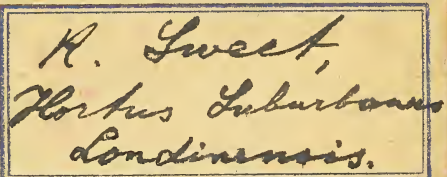 R. Sweet,
Hortus Suburbanus
Londinensis.